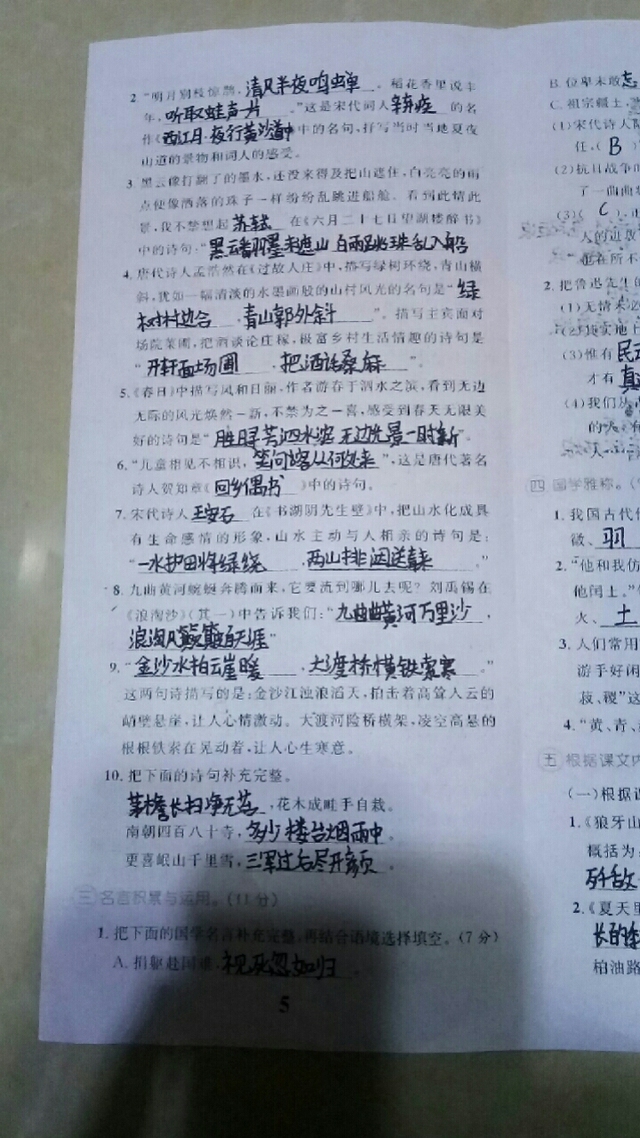 2 “明月别枝惊鹊,清风半夜鸣蝉。稻花香里说丰
年,听取蛙声一片。”这是宋代词人辛弃疾的名
作《西江月·夜行黄沙道中》中的名句,抒写当时当地夏夜
山道的景物和词人的感受。
3 黑云像打翻了的墨水,还没来得及把山遮住,白亮亮的雨
点便像洒落的珠子一样纷纷乱跳进船舱。看到此情此
景,我不禁想起苏轼在《六月二十七日望湖楼醉书》
中的诗句:“黑云翻墨未遮山 白雨跳珠乱入船
4. 唐代诗人孟浩然在《过故人庄》中,描写绿树环绕,青山横
斜,犹如一幅清淡的水墨画般的山村风光的名句是“绿
树村边合,青山郭外斜”。描写主宾面对
场院菜圃,把酒谈论庄稼,极富乡村生活情趣的诗句是
“开轩面场圃,把酒话桑麻”
5.《春日》中描写风和日丽,作者游春于泗水之滨,看到无边
无际的风光焕然一新,不禁为之一喜,感受到春天无限美
好的诗句是“胜日寻芳泗水滨 无边光景一时新”
6.“儿童相见不相识,笑问客从何处来”,这是唐代著名
诗人贺知章《回乡偶书》中的诗句。
7 宋代诗人王安石在《书湖阴先生壁》中,把山水化成具
有生命感情的形象,山水主动与人相亲的诗句是:
“一水护田将绿绕,两山排闼送青来。”
8. 九曲黄河蜿蜒奔腾而来,它要流到哪儿去呢?刘禹锡在
《浪淘沙》(其一)中告诉我们:“九曲黄河万里沙,
浪淘风簸自天涯”
9.“金沙水拍云崖暖,大渡桥横铁索寒。”
这两句诗描写的是:金沙江浊浪滔天,拍击着高耸入云的
峭壁悬崖,让人心情激动。大渡河险桥横架,凌空高悬的
根根铁索在晃动着,让人心生寒意。
10. 把下面的诗句补充完整。
茅檐长扫净无苔,花木成畦手自栽。
南朝四百八十寺,多少楼台烟雨中。
更喜岷山千里雪,三军过后尽开颜。
三 名言积累与运用。(11分)
1. 把下面的国学名言补充完整,再结合语境选择填空。(7分)
A. 捐躯赴国难,视死忽如归。
5
B. 位卑未敢忘
C. 祖宗疆土,
(1)宋代诗人陆
任,(B)
(2)抗日战争
了一曲曲
(3)(C)
人的近
在所不
2. 把鲁迅先生的
(1)无情未必
(2)其实地上
(3)惟有民
才有真
(4)我们从
的人
四 国学雅称。
1. 我国古代
徵、羽
2.“他和我仿
他闰土。”
火、土
3. 人们常用
游手好闲
菽、稷”这
4.“黄、青、
五 根据课文内
(一)根据课
1.《狼牙山
概括为:
歼敌
2.《夏天里
长的
柏油路